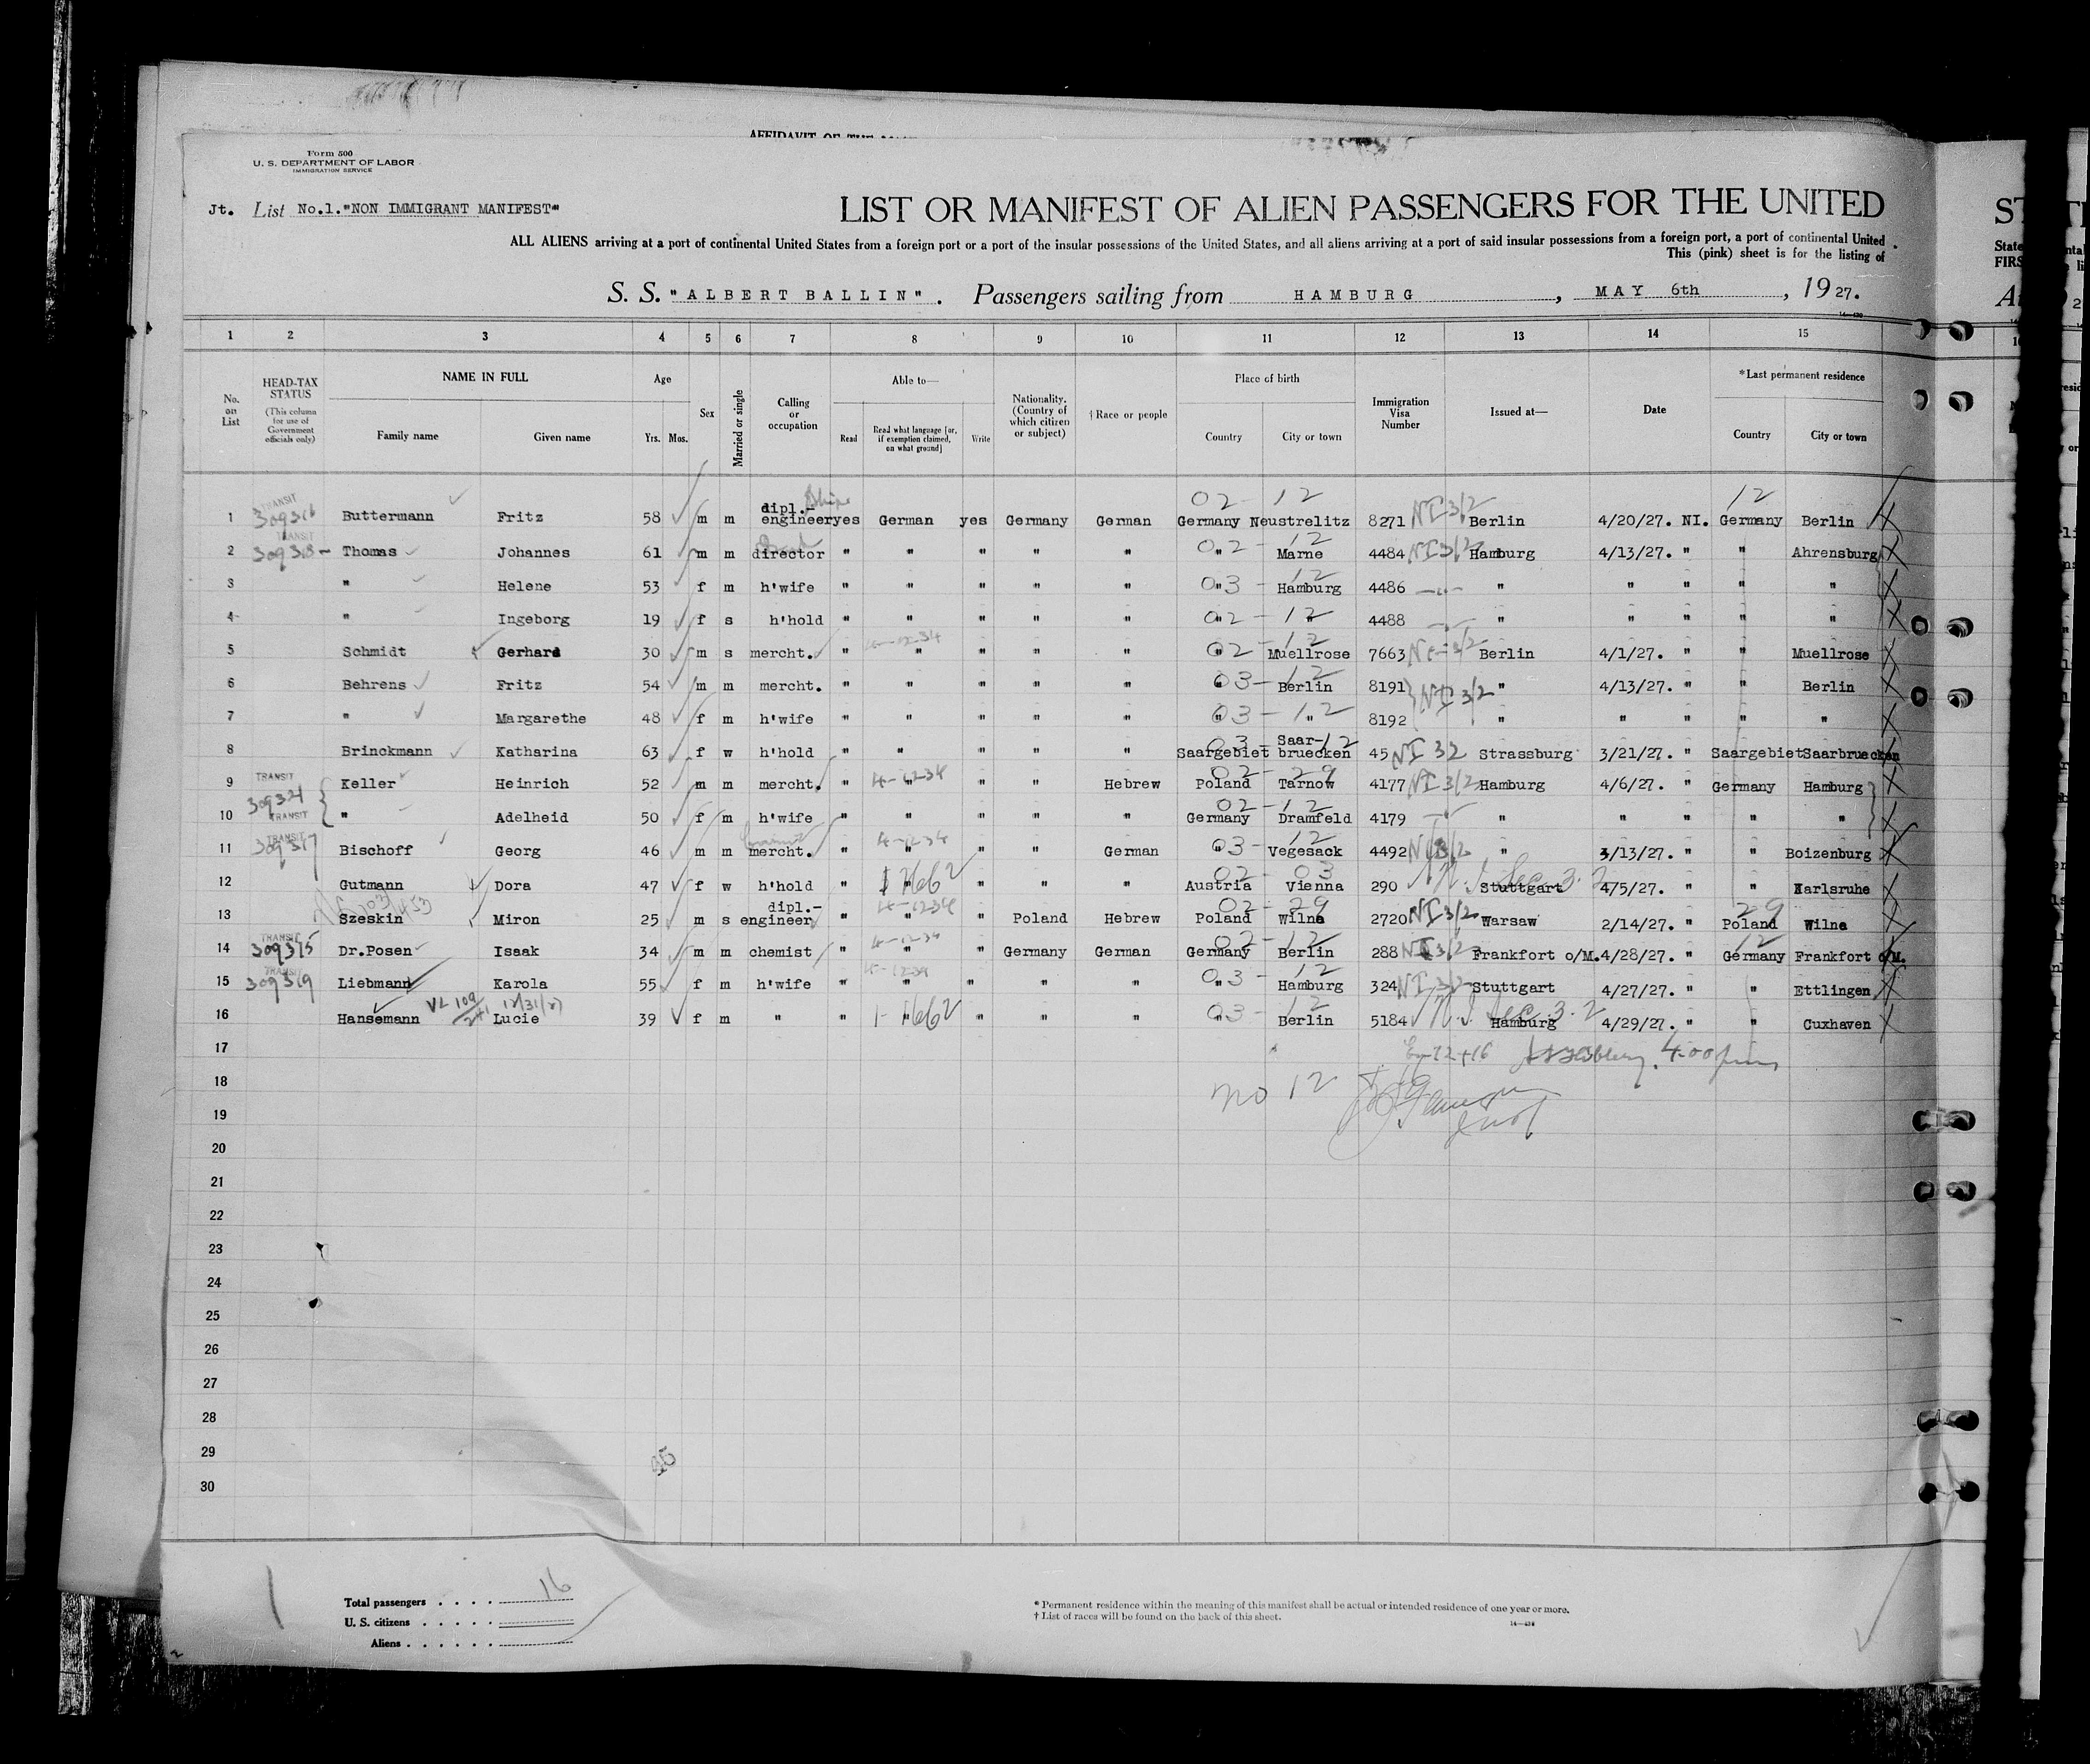 AFFIDAVIT OF THE
Form 500
U. S. DEPARTMENT OF LABOR
IMMIGRATION SERVICE
Jt. List No.1."NON IMMIGRANT MANIFEST"
LIST OR MANIFEST OF ALIEN PASSENGERS FOR THE UNITED
ALL ALIENS arriving at a port of continental United States from a foreign port or a port of the insular possessions of the United States, and all aliens arriving at a port of said insular possessions from a foreign port, a port of continental United
This (pink) sheet is for the listing of
S. S. "ALBERT BALLIN". Passengers sailing from HAMBURG, MAY 6th, 1927.
1 2 3 4 5 6 7 8 9 10 11 12 13 14 15
No. on List
HEAD-TAX STATUS (This column for use of Government officials only)
NAME IN FULL
Family name Given name
Age
Yrs. Mos.
Sex
Married or single
Calling or occupation
Able to—
Read
Read what language [or, if exemption claimed, on what ground]
Write
Nationality. (Country of which citizen or subject)
† Race or people
Place of birth
Country City or town
Immigration Visa Number
Issued at—
Date
*Last permanent residence
Country City or town
1 TRANSIT 309316 Buttermann Fritz 58 m m dipl.-engineer yes German yes Germany German 02-12 Germany Neustrelitz 8271 NI 3/2 Berlin 4/20/27. NI. 12 Germany Berlin
2 TRANSIT 309318 Thomas Johannes 61 m m director " " " " " 02-12 " Marne 4484 NI 3/2 Hamburg 4/13/27. " " Ahrensburg
3 " Helene 53 f m h'wife " " " " " 03-12 " Hamburg 4486 —"— " " " " "
4 " Ingeborg 19 f s h'hold " " " " " 02-12 " " 4488 " " " " "
5 Schmidt Gerhard 30 m s mercht. " " " " " 02 12 " Muellrose 7663 NI 3/2 Berlin 4/1/27. " " Muellrose
6 Behrens Fritz 54 m m mercht. " " " " " 03-12 " Berlin 8191 NI 3/2 " 4/13/27. " " Berlin
7 " Margarethe 48 f m h'wife " " " " " 03-12 " " 8192 " " " " "
8 Brinckmann Katharina 63 f w h'hold " " " " " 03-12 Saargebiet Saar-bruecken 45 NI 32 Strassburg 3/21/27. " Saargebiet Saarbruecken
9 TRANSIT Keller Heinrich 52 m m mercht. " 4-1234 " " " Hebrew 02-29 Poland Tarnow 4177 NI 3/2 Hamburg 4/6/27. " Germany Hamburg
10 309321 TRANSIT " Adelheid 50 f m h'wife " " " " " 02-12 Germany Dramfeld 4179 " " " " "
11 TRANSIT 309317 Bischoff Georg 46 m m mercht. " 4-1234 " " " German 03-12 " Vegesack 4492 NI 3/2 " 3/13/27. " " Boizenburg
12 Gutmann Dora 47 f w h'hold " " " " " 02-03 Austria Vienna 290 N.I. Sec 3.2 Stuttgart 4/5/27. " " Karlsruhe
13 Szeskin Miron 25 m s dipl.-engineer " 4-1234 " " Poland Hebrew 02-29 Poland Wilna 2720 NI 3/2 Warsaw 2/14/27. " 29 Poland Wilna
14 TRANSIT 309315 Dr.Posen Isaak 34 m m chemist " 4-1234 " " Germany German 02-12 Germany Berlin 288 NI 3/2 Frankfort o/M. 4/28/27. " 12 Germany Frankfort o/M.
15 TRANSIT 309319 Liebmann Karola 55 f m h'wife " " " " " 03-12 " Hamburg 324 NI 3/2 Stuttgart 4/27/27. " " Ettlingen
16 Hansemann Lucie 39 f m " " " " " " 03-12 " Berlin 5184 N.I. Sec 3.2 Hamburg 4/29/27. " " Cuxhaven
17
18 no 12
19
20
21
22
23
24
25
26
27
28
29
30
Total passengers . . . . 16
U. S. citizens . . . . .
Aliens . . . . . .
* Permanent residence within the meaning of this manifest shall be actual or intended residence of one year or more.
† List of races will be found on the back of this sheet.